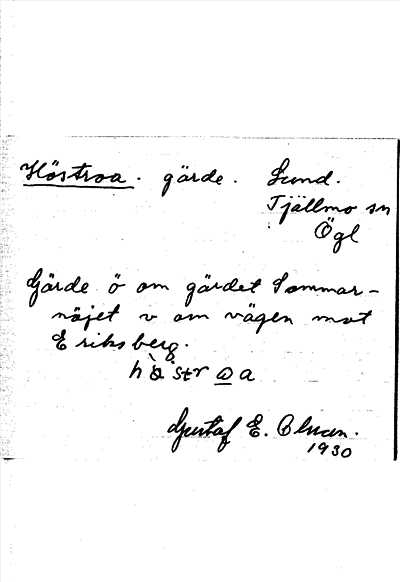 Höstroa. gärde. Lund.
Tjällmo sn
Ögl
Gärde ö om gärdet Sommar-
nöjet v om vägen mot
Eriksberg.
Gustaf E. Olman.
1930